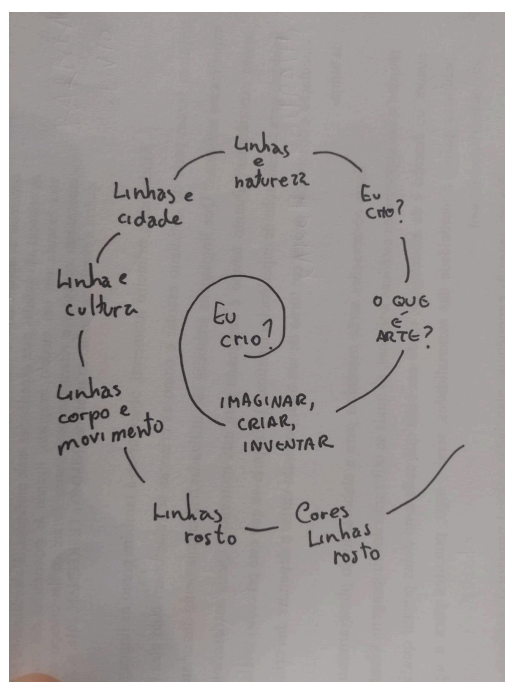 Eu
crio?
IMAGINAR,
CRIAR,
INVENTAR
O QUE
É
ARTE?
Eu
crio?
Linhas
e
natureza
Linhas e
cidade
Linha e
cultura
Linhas
corpo e
movimento
Linhas
rosto
Cores
Linhas
rosto